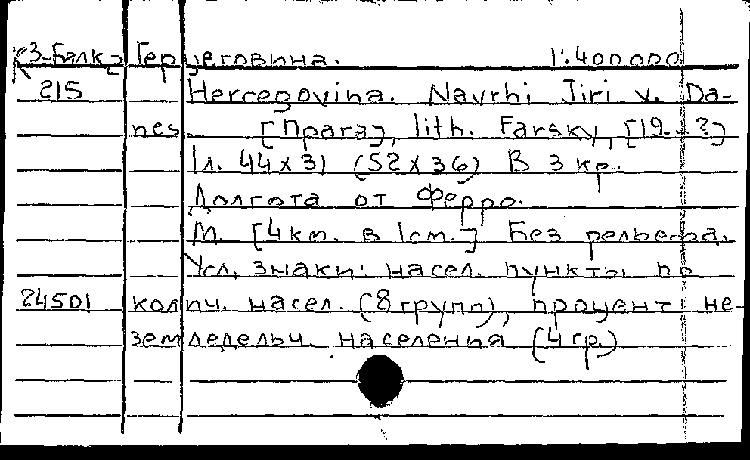 К3-Балк Герцеговина. 1:400000
215 Hercegovina. Navrhi Jiri v. Da-
nes. [Прага], lith. Farsky, [19--?]
1л. 44х31 (52х36) В 3 кр.
Долгота от Ферро.
М. [4км. в 1см.] Без рельефа.
Усл. знаки: насел. пункты по
24501 колич. насел. (8 групп), процент не-
земледельч. населения (4 гр.)